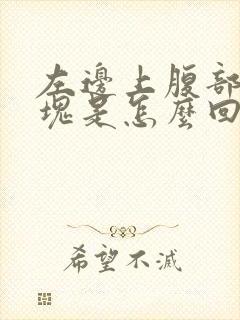 左邊上腹部
塊是怎麼回
希望不滅